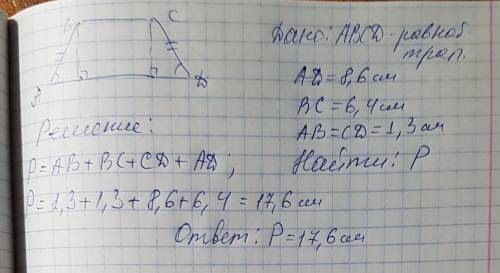 C
A
D
Дано: ABCD - равноб.
трап.
AD = 8,6 см
BC = 6,4 см
AB = CD = 1,3 см
Найти: P
Решение:
P = AB + BC + CD + AD;
P = 1,3 + 1,3 + 8,6 + 6,4 = 17,6 см
Ответ: P = 17,6 см